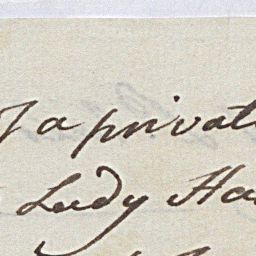 a privat
Lady Ha